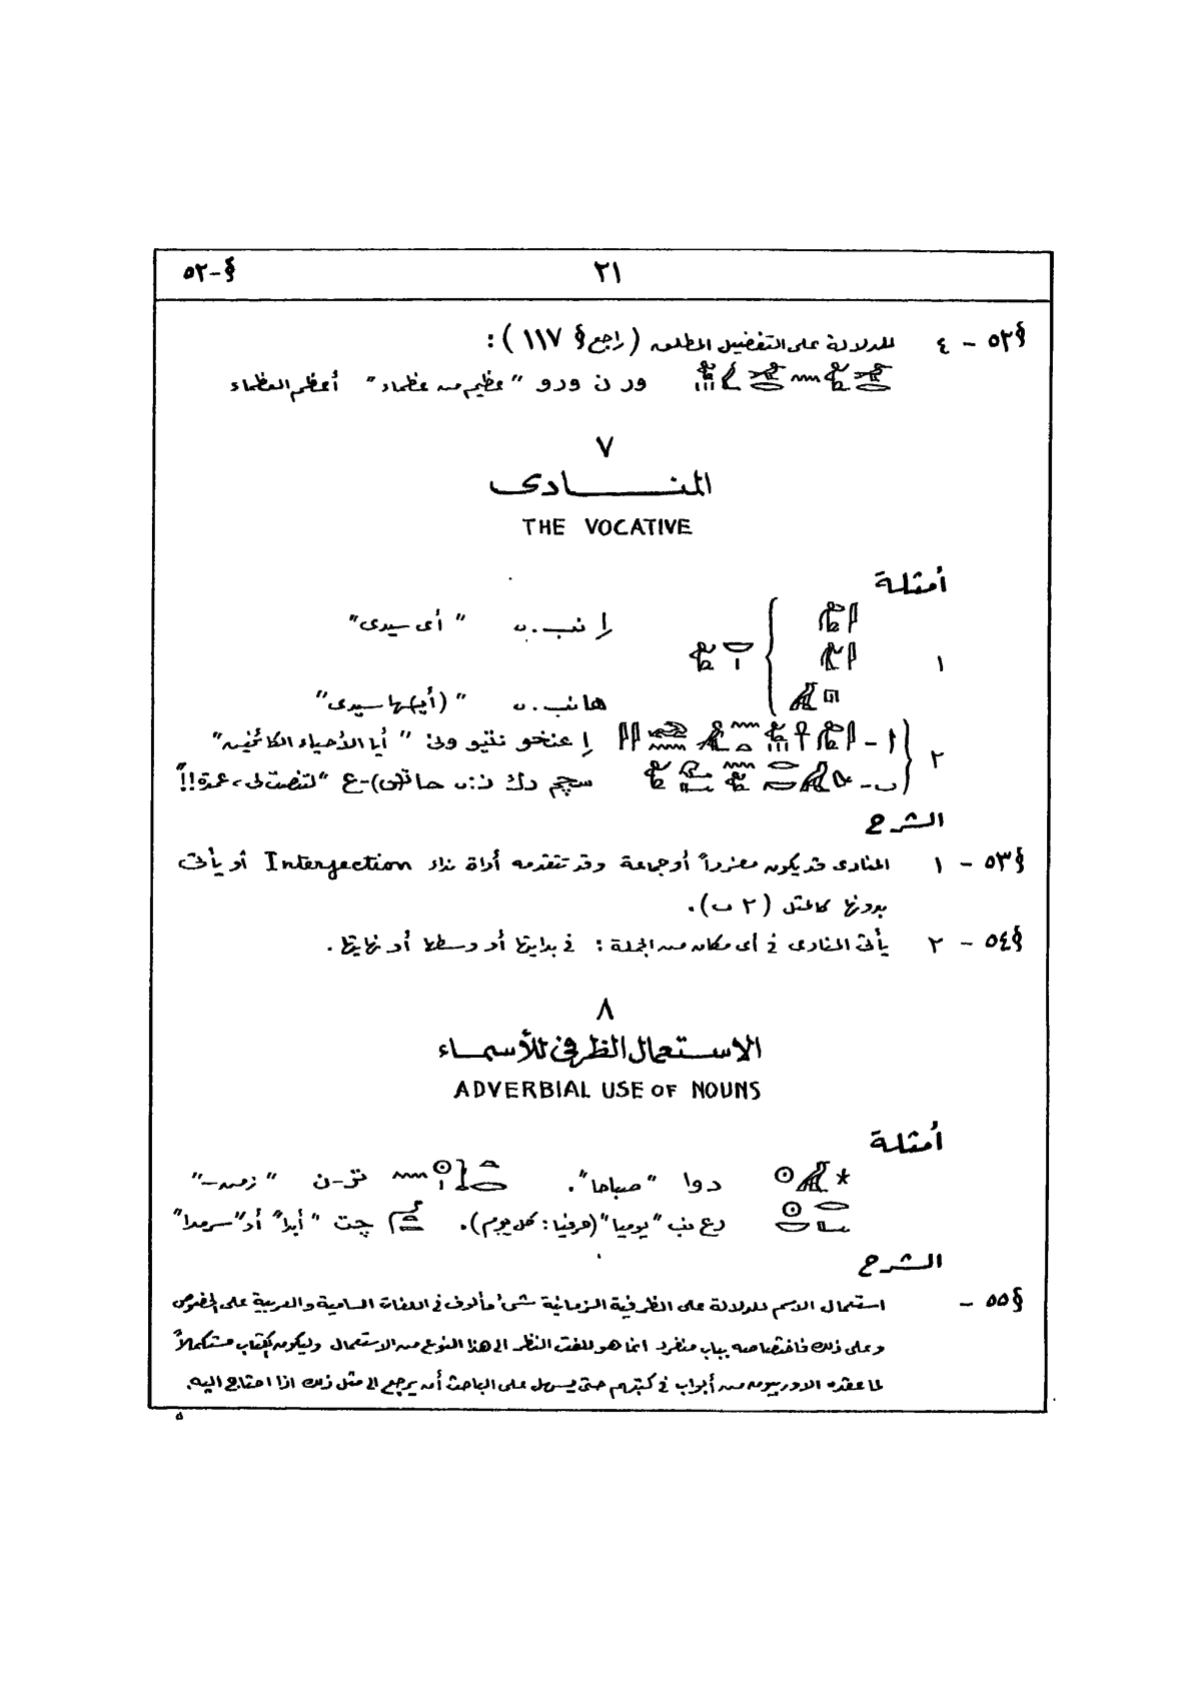 §-٥٢ ٢١
§٥٢ - ٤ للدلالة على التفضيل المطلق (راجع § ١١٧) :
ور ن ورو "عظيم من عظماء" أعظم العظماء
٧
المنادى
THE VOCATIVE
أمثلة
إ نب.ى "أى سيدى"
١
ها نب.ى "(أي)ها سيدى"
٢ أ - إ عنخو نتيو ونى "أيا الأحياء الكائنين"
ب - سچم دك ن:ى حا "لتنصت لى، عمدة!!"
الشرح
§٥٣ - ١ المنادى قد يكون مفرداً أو جماعة وقد تتقدمه أداة نداء Interjection أو يأتى
بدونها كالمثل (٢ ب).
§٥٤ - ٢ يأتى المنادى فى أى مكان من الجملة : فى بدايتها أو وسطها أو نهايتها.
٨
الاستعمال الظرفى للأسماء
ADVERBIAL USE OF NOUNS
أمثلة
دوا "صباحا". تر-ن "زمن-"
رع نب "يوميا" (حرفيا : كل يوم). چت "أبدا" أو "سرمدا"
الشرح
§٥٥ - استعمال الاسم للدلالة على الظرفية الزمانية شئ مألوف فى اللغات السامية والعربية على الخصوص
وعلى ذلك فاختصاصه بباب منفرد انما هو للفت النظر الى هذا النوع من الاستعمال وليكون الكتاب مستكملاً
لما عقده الاوربيون من أبواب فى كتبهم حتى يسهل على الباحث أن يرجع الى مثل ذلك اذا احتاج اليه.